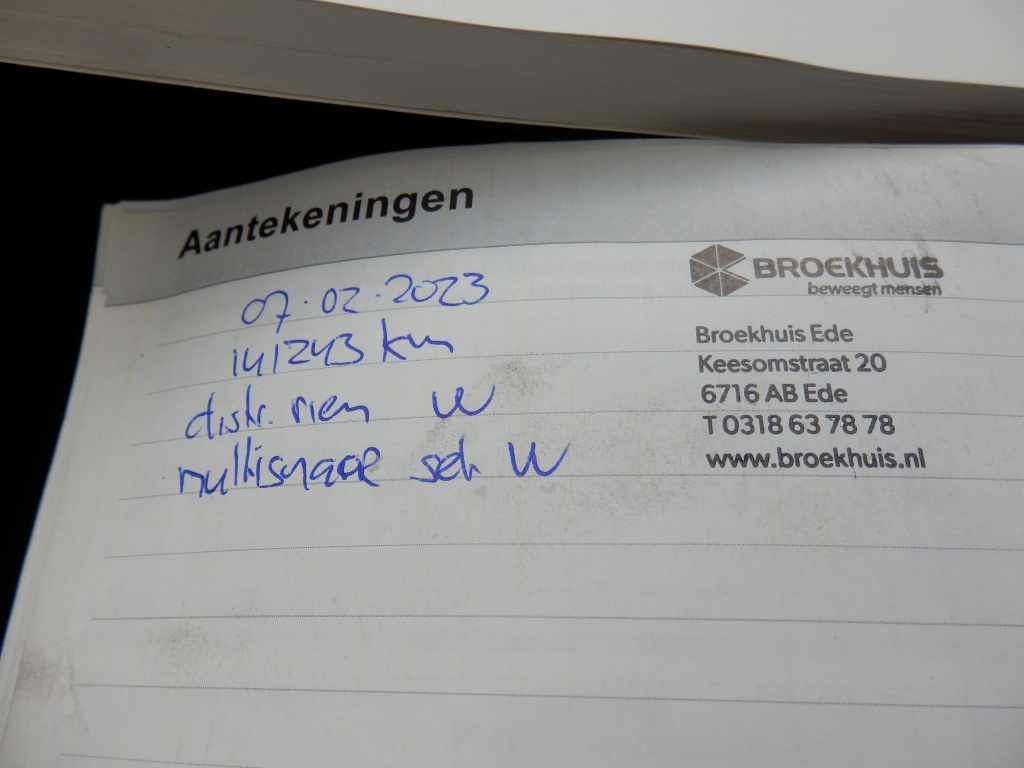 Aantekeningen
07.02.2023
141243 km
distr. riem W
multisnaar set W
BROEKHUIS
beweegt mensen
Broekhuis Ede
Keesomstraat 20
6716 AB Ede
T 0318 63 78 78
www.broekhuis.nl